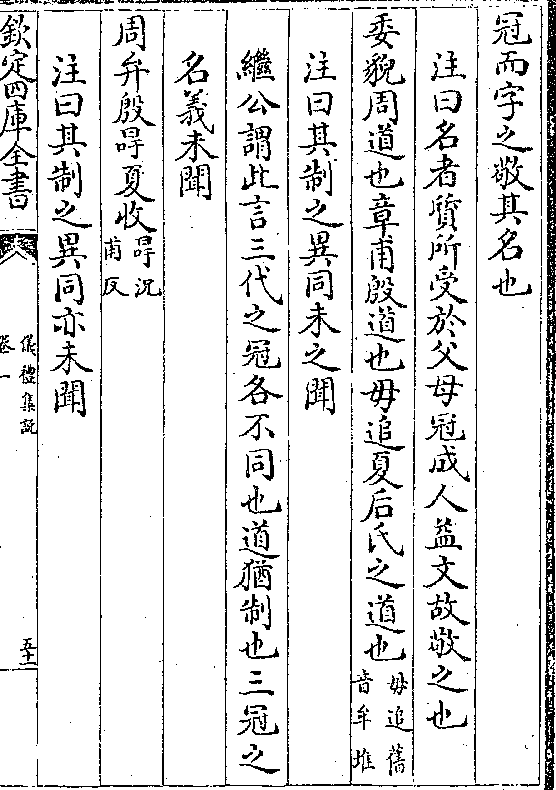 冠而字之敬其名也
注曰名者質所受於父母冠成人益文故敬之也
委貌周道也章甫殷道也毋追夏后氏之道也毋追舊音牟堆
注曰其制之異同未之聞
繼公謂此言三代之冠各不同也道猶制也三冠之
名義未聞
周弁殷冔夏收冔況甫反
注曰其制之異同亦未聞
欽定四庫全書
儀禮集說
卷一
五十二